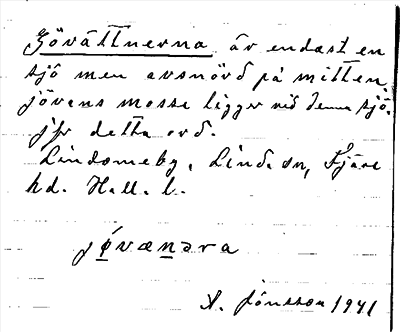 Gövättnerna är endast en
sjö men avsnörd på mitten.
jövens mosse ligger vid denna sjö.
jfr detta ord.
Lindomeby, Linda sn, Fjäre
hd. Hall. l.
jøvænara
A. Jönsson 1941